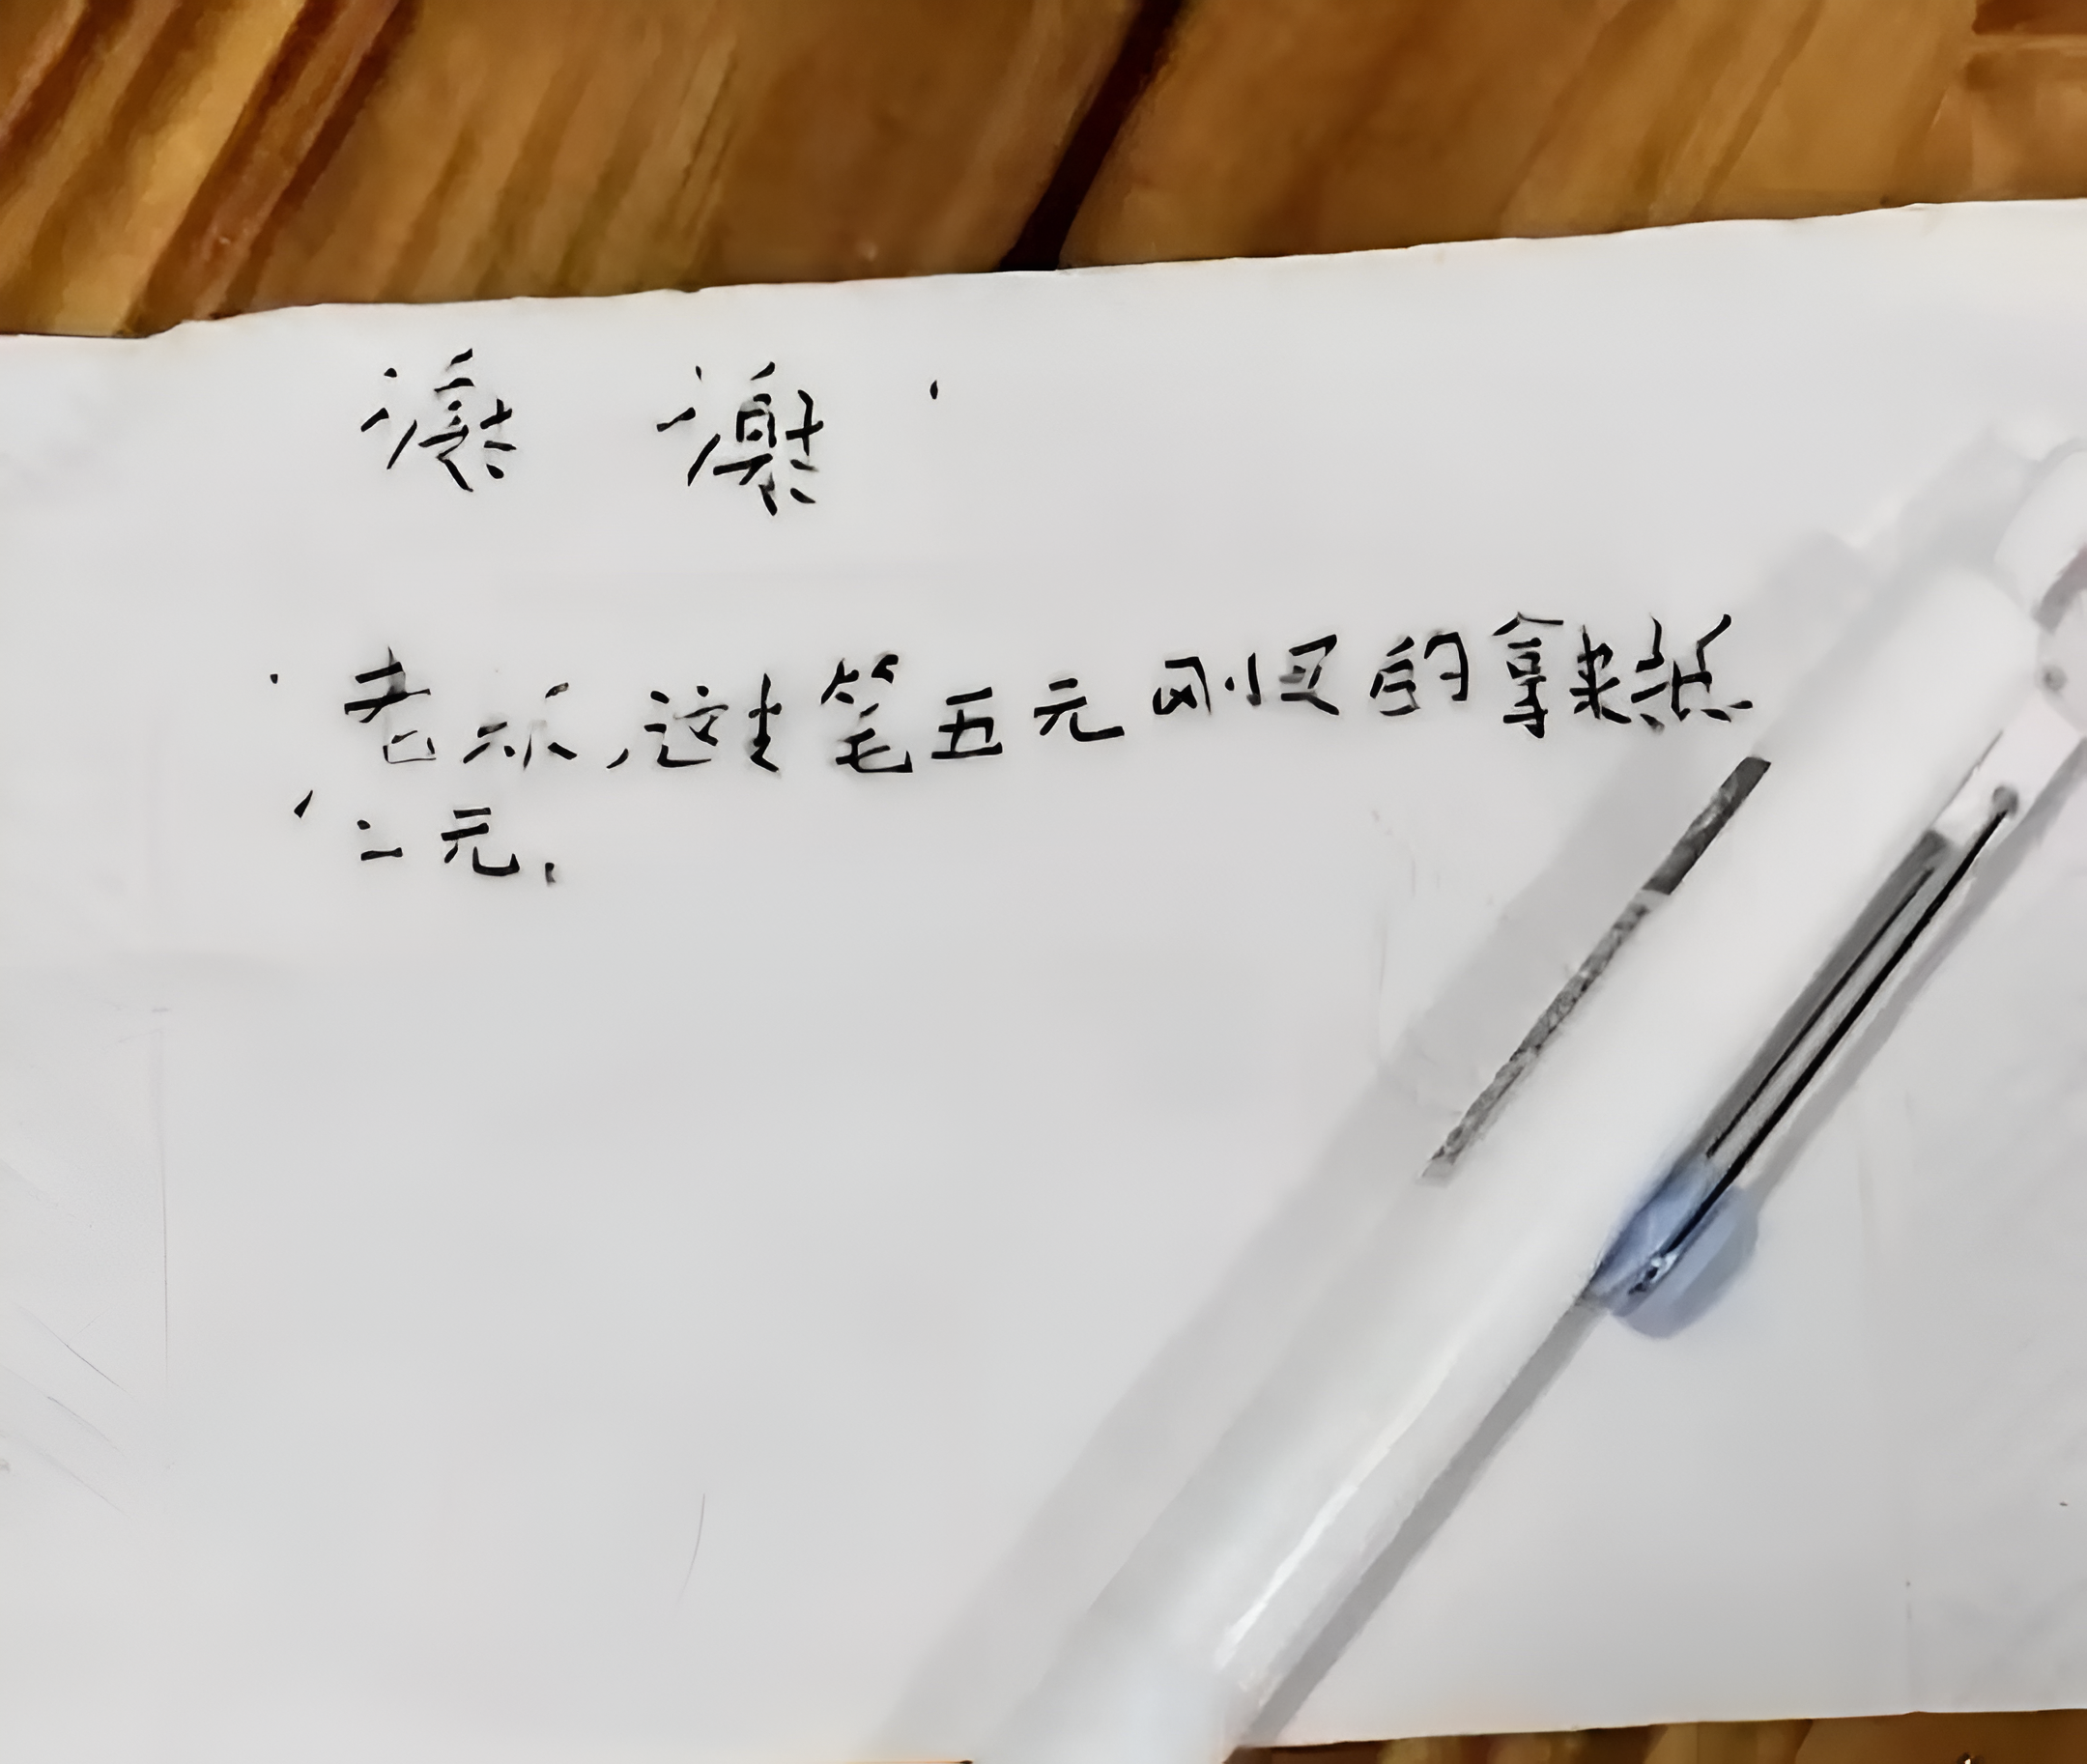 谢 谢
老板,这支笔五元刚买的拿来抵
二元.